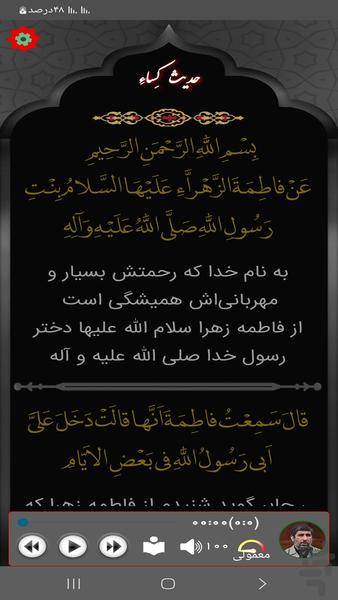 ۳۸درصد
حدیث کِساءِ
بِسْمِ اللهِ الرَّحْمنِ الرَّحِيمِ
عَنْ فاطِمَةَ الزَّهْراَّءِ عَلَيْهَا السَّلامُ بِنْتِ
رَسُولِ اللهِ صَلَّى اللهُ عَلَيْهِ وَآلِهِ
به نام خدا که رحمتش بسیار و
مهربانی‌اش همیشگی است
از فاطمه زهرا سلام الله علیها دختر
رسول خدا صلی الله علیه و آله
قالَ سَمِعْتُ فاطِمَةَ اَنَّها قالَتْ دَخَلَ عَلَىَّ
اَبى رَسُولُ اللهِ فى بَعْضِ الاَيّامِ
جابر گوید شنیدم از فاطمه زهرا که
00:00(0:0)
۱۰۰
معمولی